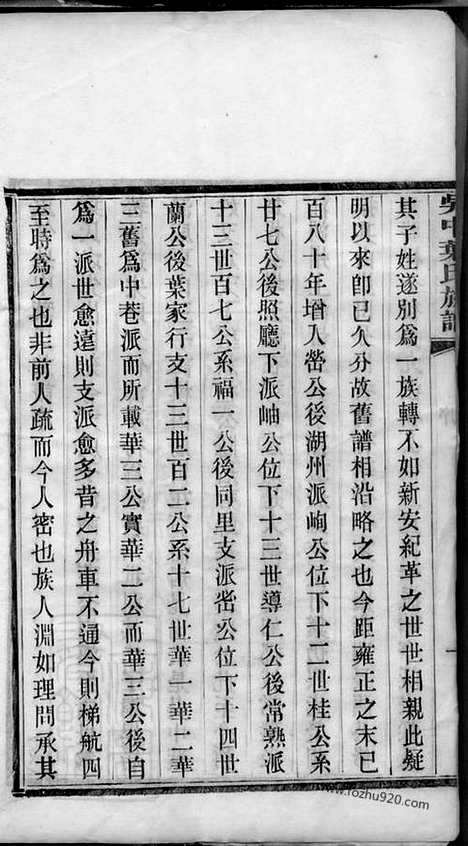 吳中葉氏族譜
其子姓遂別爲一族轉不如新安紀革之世世相親此疑
明以來卽已久分故舊譜相沿略之也今距雍正之末已
百八十年增入嵤公後湖州派峋公位下十二世桂公系
廿七公後照廳下派岫公位下十三世導仁公後常熟派
十三世百七公系福一公後同里支派峃公位下十四世
蘭公後葉家行支十三世百二公系十七世華一華二華
三舊爲中巷派而所載華三公實華二公而華三公後自
爲一派世愈遠則支派愈多昔之舟車不通今則梯航四
至時爲之也非前人疏而今人密也族人淵如理問承其
www.rozhu920.com